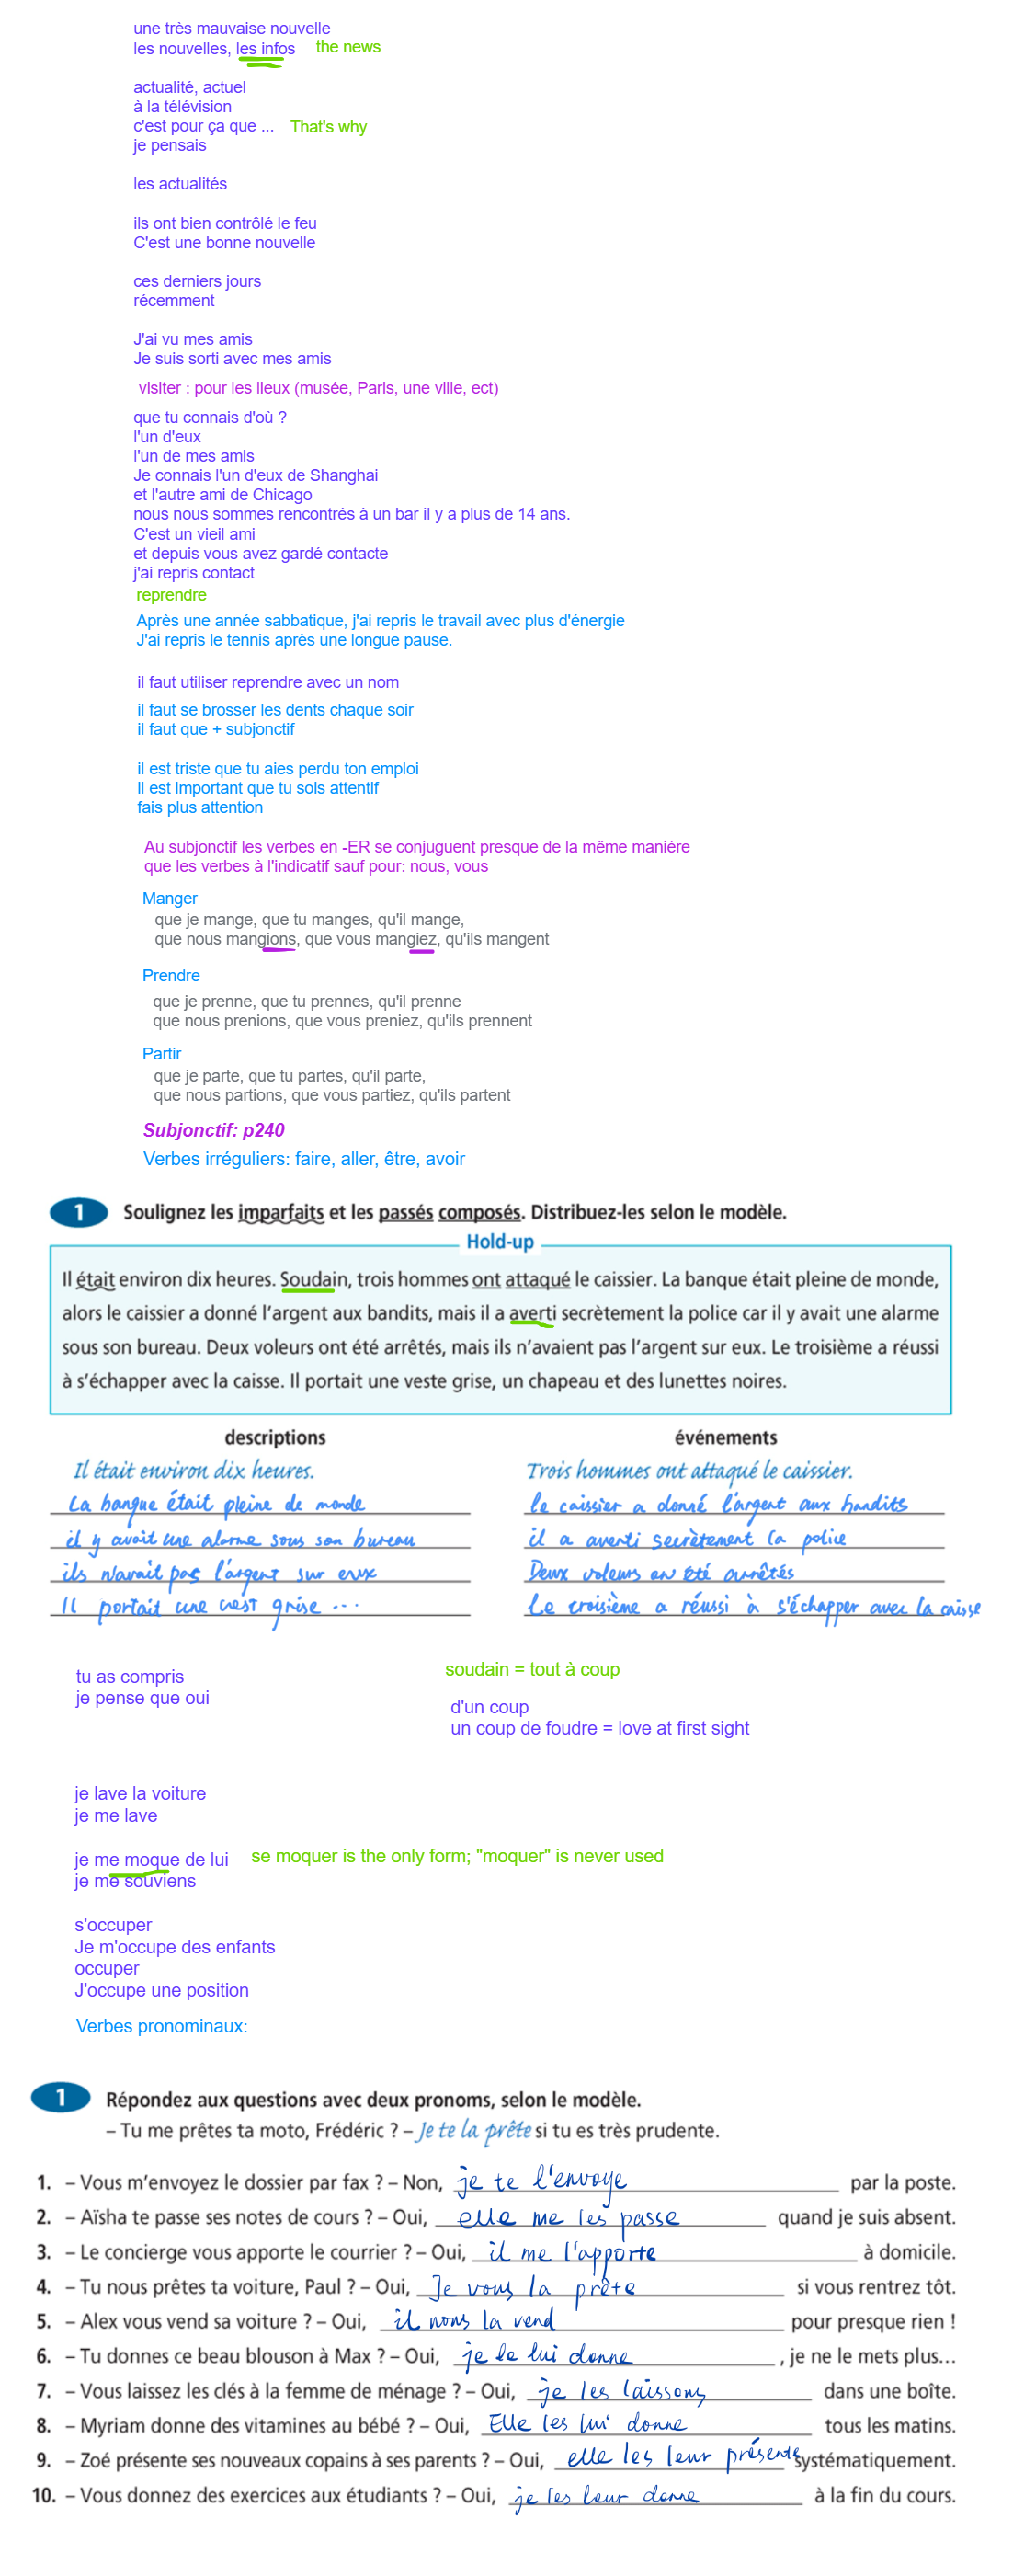 une très mauvaise nouvelle
les nouvelles, les infos the news
actualité, actuel
à la télévision
c'est pour ça que ... That's why
je pensais
les actualités
ils ont bien contrôlé le feu
C'est une bonne nouvelle
ces derniers jours
récemment
J'ai vu mes amis
Je suis sorti avec mes amis
visiter : pour les lieux (musée, Paris, une ville, ect)
que tu connais d'où ?
l'un d'eux
l'un de mes amis
Je connais l'un d'eux de Shanghai
et l'autre ami de Chicago
nous nous sommes rencontrés à un bar il y a plus de 14 ans.
C'est un vieil ami
et depuis vous avez gardé contacte
j'ai repris contact
reprendre
Après une année sabbatique, j'ai repris le travail avec plus d'énergie
J'ai repris le tennis après une longue pause.
il faut utiliser reprendre avec un nom
il faut se brosser les dents chaque soir
il faut que + subjonctif
il est triste que tu aies perdu ton emploi
il est important que tu sois attentif
fais plus attention
Au subjonctif les verbes en -ER se conjuguent presque de la même manière
que les verbes à l'indicatif sauf pour: nous, vous
Manger
que je mange, que tu manges, qu'il mange,
que nous mangions, que vous mangiez, qu'ils mangent
Prendre
que je prenne, que tu prennes, qu'il prenne
que nous prenions, que vous preniez, qu'ils prennent
Partir
que je parte, que tu partes, qu'il parte,
que nous partions, que vous partiez, qu'ils partent
Subjonctif: p240
Verbes irréguliers: faire, aller, être, avoir
1 Soulignez les imparfaits et les passés composés. Distribuez-les selon le modèle.
Hold-up
Il était environ dix heures. Soudain, trois hommes ont attaqué le caissier. La banque était pleine de monde,
alors le caissier a donné l'argent aux bandits, mais il a averti secrètement la police car il y avait une alarme
sous son bureau. Deux voleurs ont été arrêtés, mais ils n'avaient pas l'argent sur eux. Le troisième a réussi
à s'échapper avec la caisse. Il portait une veste grise, un chapeau et des lunettes noires.
descriptions événements
Il était environ dix heures. Trois hommes ont attaqué le caissier.
La banque était pleine de monde le caissier a donné l'argent aux bandits
il y avait une alarme sous son bureau il a averti secrètement la police
ils n'avait pas l'argent sur eux Deux voleurs on été arrêtés
Il portait une vest grise ... Le troisième a réussi à s'échapper avec la caisse
tu as compris soudain = tout à coup
je pense que oui
d'un coup
un coup de foudre = love at first sight
je lave la voiture
je me lave
je me moque de lui se moquer is the only form; "moquer" is never used
je me souviens
s'occuper
Je m'occupe des enfants
occuper
J'occupe une position
Verbes pronominaux:
1 Répondez aux questions avec deux pronoms, selon le modèle.
– Tu me prêtes ta moto, Frédéric ? – Je te la prête si tu es très prudente.
1. – Vous m'envoyez le dossier par fax ? – Non, je te l'envoye par la poste.
2. – Aïsha te passe ses notes de cours ? – Oui, elle me les passe quand je suis absent.
3. – Le concierge vous apporte le courrier ? – Oui, il me l'apporte à domicile.
4. – Tu nous prêtes ta voiture, Paul ? – Oui, Je vous la prête si vous rentrez tôt.
5. – Alex vous vend sa voiture ? – Oui, il nous la vend pour presque rien !
6. – Tu donnes ce beau blouson à Max ? – Oui, je le lui donne , je ne le mets plus...
7. – Vous laissez les clés à la femme de ménage ? – Oui, je les laissons dans une boîte.
8. – Myriam donne des vitamines au bébé ? – Oui, Elle les lui donne tous les matins.
9. – Zoé présente ses nouveaux copains à ses parents ? – Oui, elle les leur présente systématiquement.
10. – Vous donnez des exercices aux étudiants ? – Oui, je les leur donne à la fin du cours.